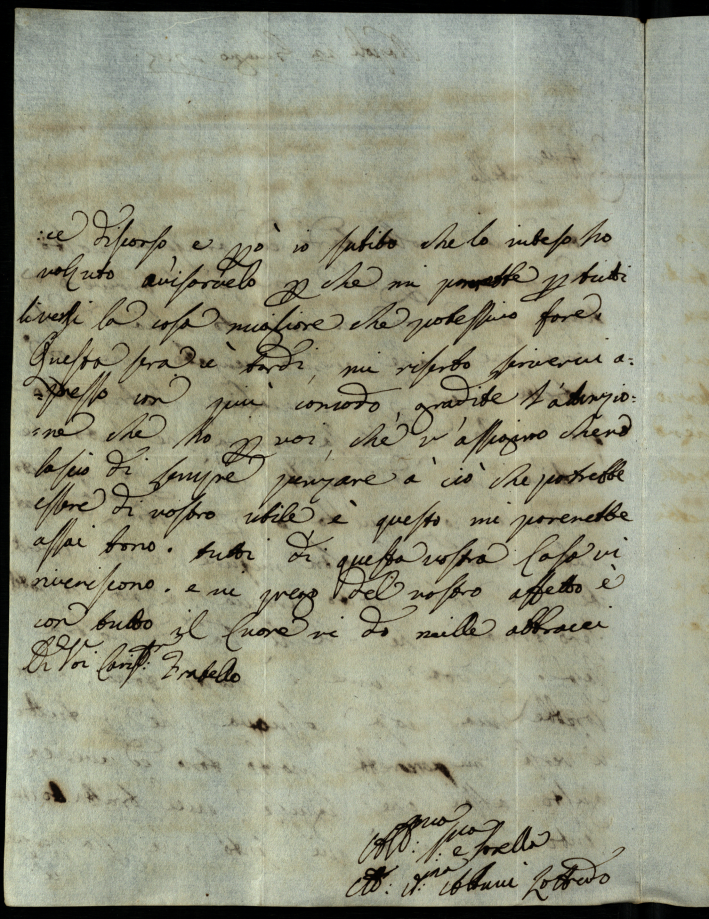 :ce discorso e pò io subito che lo inteso ho
volzuto avisarvelo p che mi p tutti
li versi la cosa migliore che potessivo fare.
Questa sera è tardi, mi riserbo scrivervi a:
:presso con più comodo, gradite l'atenzio:
:ne che ho p voi, che v'assicuro che nō
lascio di sempre penzare a ciò che potrebbe
essere di vostro utile è questo mi parerebbe
assai bono. tutti di questa vostra Casa vi
riveriscono. e vi prego del vostro affetto è
con tutto il Cuore vi do mille abbracci
Di Voi Fratello
e sorella